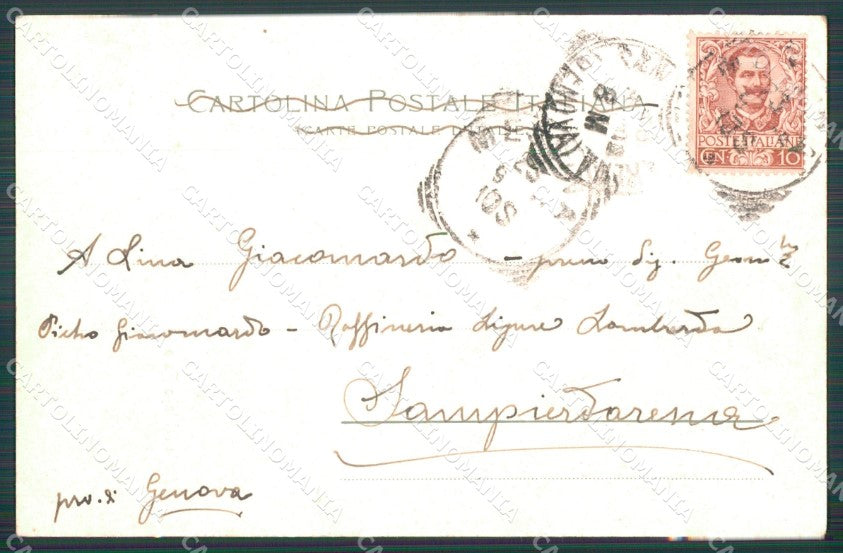 CARTOLINA POSTALE ITALIANA
(CARTE POSTALE D'ITALIE)
POSTE ITALIANE
CEN 10
SAMPIERDARENA
(GENOVA)
A Lina Giacomardo - presso Sig. Geom
Pietro Giacomardo - Raffineria Ligure Lombarda
Sampierdarena
pro. di Genova
CARTOLINOMANIA